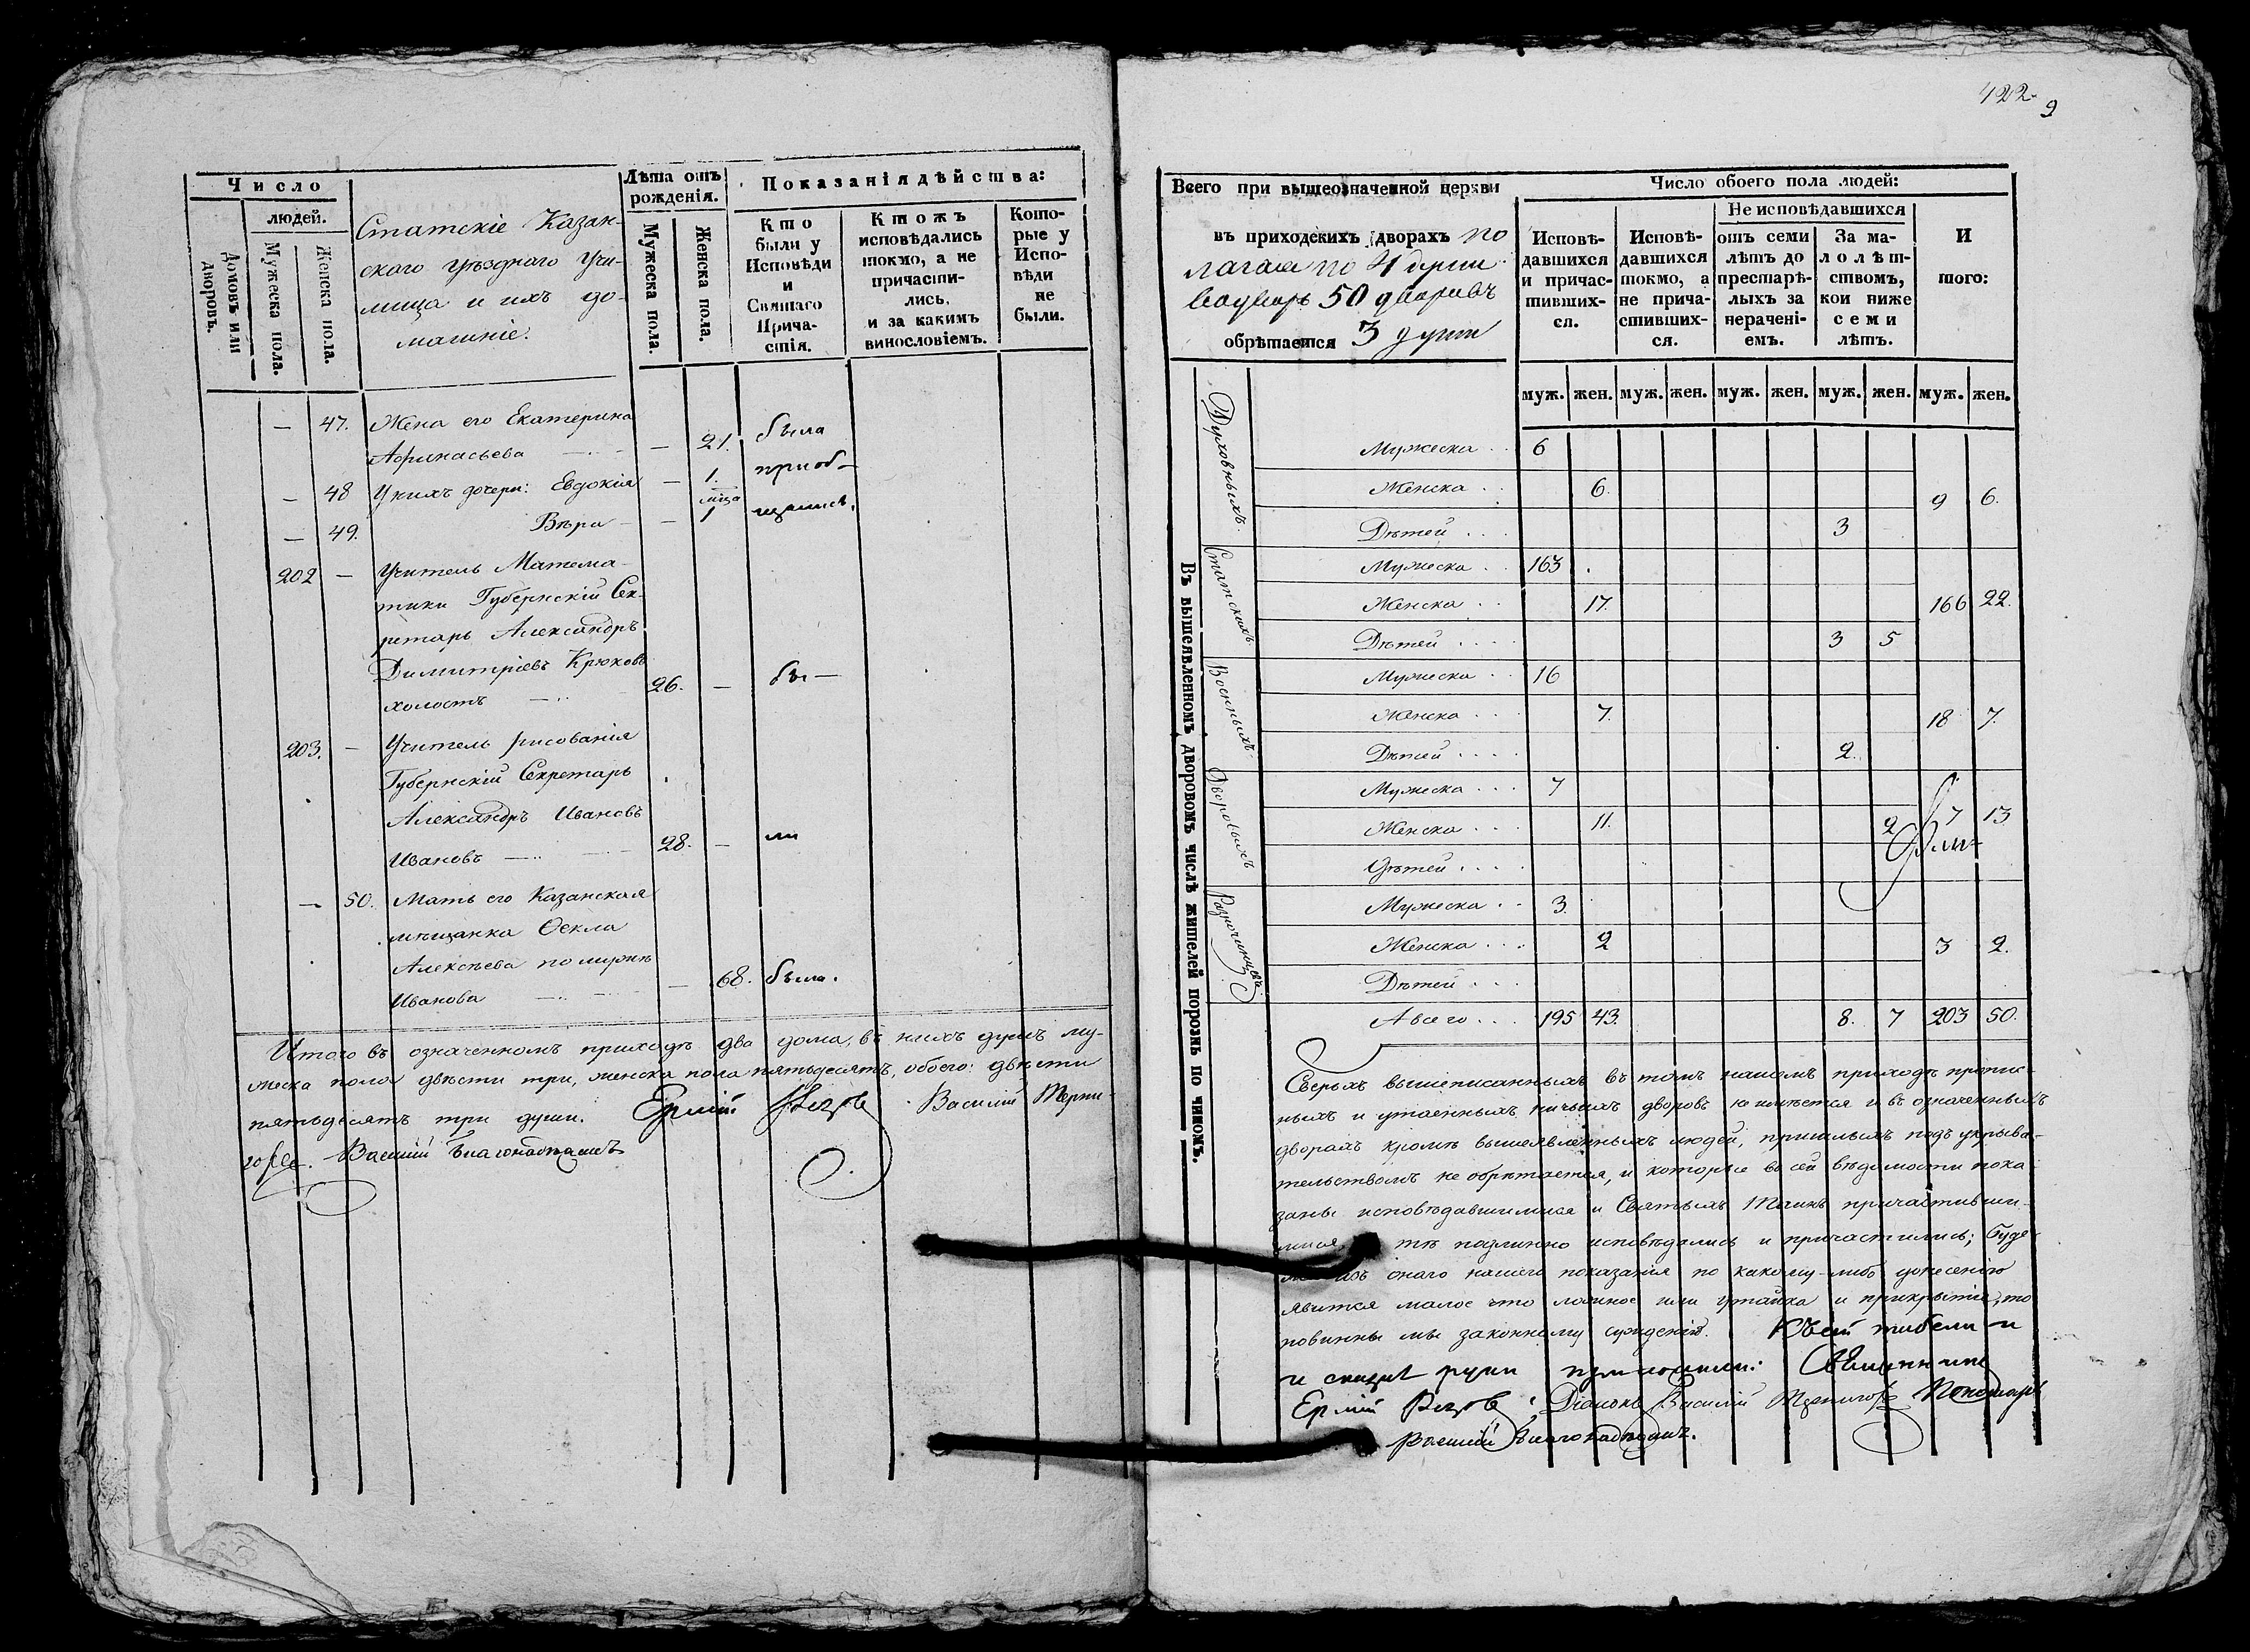 422.
9
Число
людей.
Домовъ или дворовъ.
Мужеска пола.
Женска пола.
Статскіе Казан-
скаго уѣзднаго Учи-
лища и ихъ до-
машніе.
Лѣта отъ
рожденія.
Мужеска пола.
Женска пола.
Показанія дѣйства:
Кто
были у
Исповѣди
и
Святаго
Прича-
стія.
Ктожъ
исповѣдались
токмо, а не
причасти-
лись,
и за какимъ
винословіемъ.
Кото-
рые у
Испо-
вѣди
не
были.
— 47. Жена его Екатерина
Афинасьева — 21. была
— 48 У нихъ дочери: Евдокія — 1. приоб-
— 49. Вѣра — мѣца 1 щались.
202 — Учитель Матема-
тики Губернскій Сек-
ретарь Александръ
Димитріевъ Крюковъ
холостъ 26. — бы —
203. — Учитель рисованія
Губернскій Секретарь
Александръ Ивановъ
Ивановъ 28. — ли
— 50. Мать его Казанская
мѣщанка Ѳекла
Алексѣева по мужѣ
Иванова — 68. была.
Итого въ означенномъ приходѣ два дома, въ нихъ душъ му-
жеска пола двѣсти три, женска пола пятьдесятъ, обоего: двѣсти
пятьдесятъ три души. Ермій Василій
Василій
Всего при вышеозначенной церкви
въ приходскихъ дворахъ по
лагая по 4 души
50 дворовъ
обрѣтается 3 души
Число обоего пола людей:
Исповѣ-
давшихся
и причас-
тивших-
ся.
Исповѣ-
давшихся
токмо, а
не прича-
стивших-
ся.
Не исповѣдавшихся
отъ семи
лѣтъ до
престарѣ-
лыхъ за
нерачені-
емъ.
За ма-
лолѣт-
ствомъ,
кои ниже
семи
лѣтъ.
И
того:
муж. жен. муж. жен. муж. жен. муж. жен. муж. жен.
Въ вышеявленномъ дворовомъ числѣ жителей порознь по чиномъ.
Духовныхъ.
Мужеска . . 6
Женска . . 6. 9 6.
Дѣтей . . . 3
Статскихъ.
Мужеска . . 163
Женска . . 17. 166 22.
Дѣтей . . . 3 5
Военныхъ.
Мужеска . . 16
Женска . . . 7. 18 7.
Дѣтей . . . . 2.
Дворовыхъ
Мужеска . . . 7
Женска . . . 11. 2 7 13
Дѣтей . . . .
Разночинцевъ.
Мужеска . . 3.
Женска . . . 2 3 2.
Дѣтей . . .
А всего . . . 195 43. 8. 7 203 50.
Сверхъ вышеписанныхъ въ томъ нашемъ приходѣ пропис-
ныхъ и утаенныхъ ничьихъ дворовъ не имѣется и въ означенныхъ
дворахъ кромѣ вышеявленныхъ людей, пришлыхъ подъ укрыва-
тельствомъ не обрѣтается, и которые въ сей вѣдомости пока-
заны исповѣдавшимися и Святыхъ Таинъ причастивши-
мися, тѣ подлинно исповѣдались и причастились; буде
изъ онаго нашего показанія по какому-либо донесенію
явится малое что ложное или утайка и прикрытіе, то
повинны мы законному сужденію. Къ сей
и руки приложили:
Ермій Діаконъ Василій Пономарь
Василій